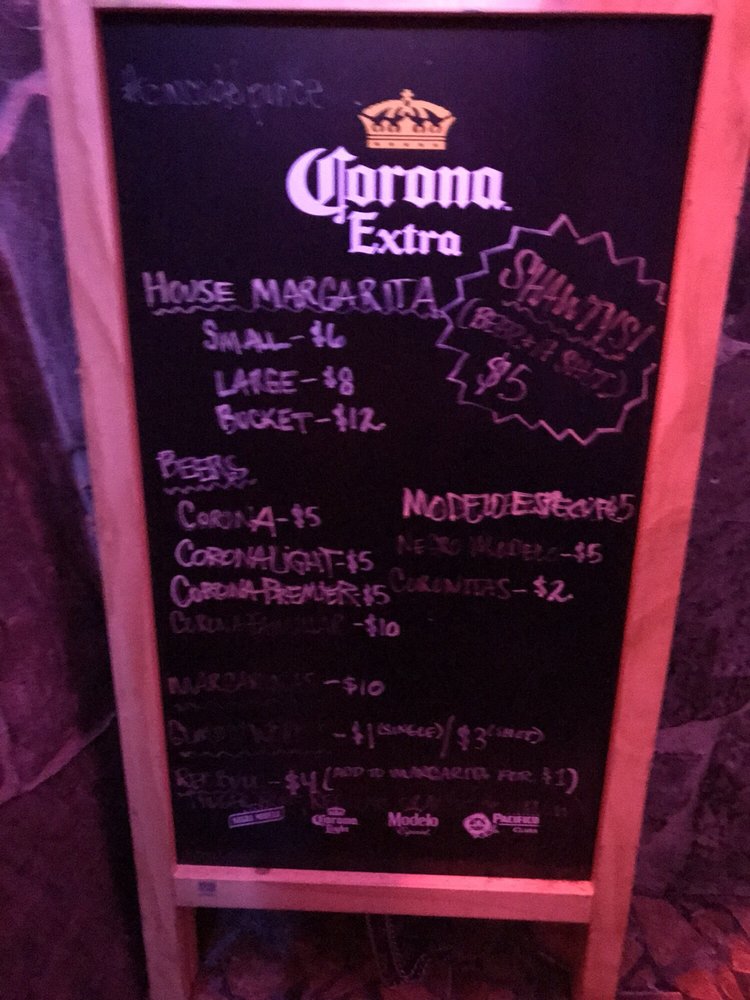 Corona
Extra
HOUSE MARGARITA
SMALL - $6
LARGE - $8
BUCKET - $12
SHAWTYS!
(BEER + A SHOT)
$5
BEERS
CORONA - $5
CORONA LIGHT - $5
CORONA PREMIER $5
CORONA FAMILIAR - $10
MODELO ESPECIAL $5
NEGRO MODELO - $5
CORONITAS - $2
- $10
- $1 (SINGLE) / $3
RED BULL - $4 (ADD TO MARGARITA FOR $1)
NEGRA MODELO
Corona
Light
Modelo
Especial
PACIFICO
CLARA